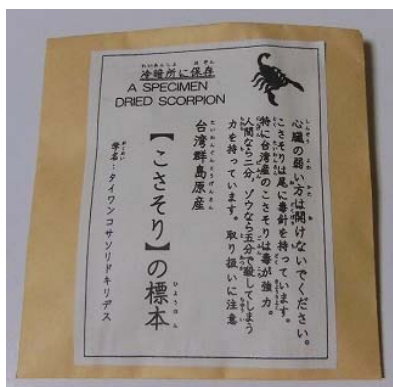 冷暗所に保存
A SPECIMEN
DRIED SCORPION
心臓の弱い方は開けないでください。
こさそりは尾に毒針を持っています。
特に台湾産のこさそりは毒が強力。
人間なら二分、ゾウなら五分で殺してしまう
力を持っています。取り扱いに注意
台湾群島原産
【こさそり】の標本
学名：タイワンコサソリドキリデス